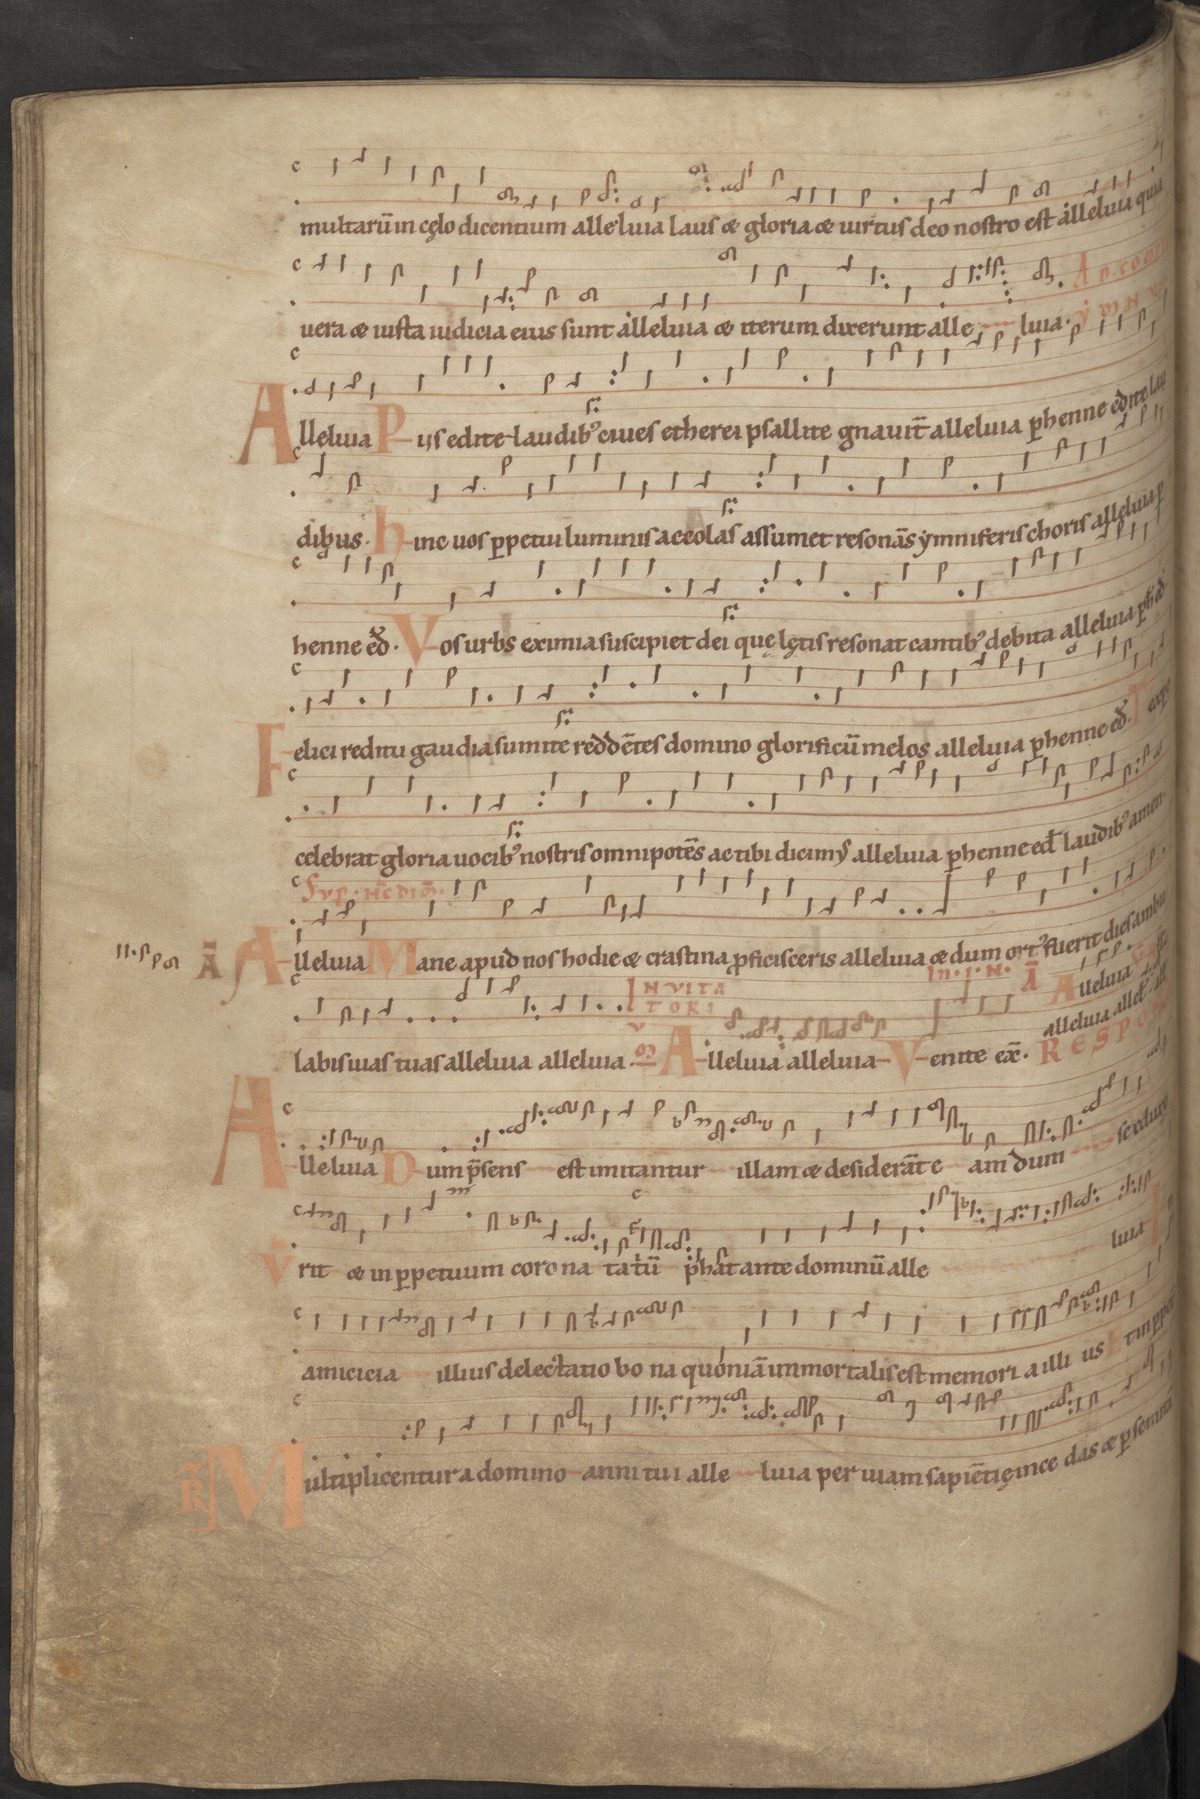 multarū in cęlo dicentium alleluia laus & gloria & uirtus deo nostro est alleluia quia
uera & iusta iudicia eius sunt alleluia & iterum dixerunt alle luia.
Alleluia Piis edite laudib; ciues etherei psallite gnauit̄ alleluia phenne edite lau
dibus. Hinc uos ppetui luminis accolas assumet resonās ẏmniferis choris alleluia p
henne ed. Vos urbs eximia suscipiet dei que lętis resonat cantib; debita alleluia ph ed
Felici reditu gaudia sumite reddētes domino glorificū melos alleluia phenne ed. Te xpe
celebrat gloria uocib; nostris omnipotēs ac tibi dicim; alleluia phenne ed laudib; amen.
Sup.
Ā Alleluia Mane apud nos hodie & crastina pficisceris alleluia & dum ort; fuerit dies ambu
INVITATORI
labis uias tuas alleluia alleluia. Alleluia alleluia Venite ex̄. Ā Alleluia
alleluia alle
RESPON
Alleluia Dum p̄sens est imitantur illam & desiderāt e am dum se eduxe
V̄ rit & in ppetuum corona tatū p̄hat ante dominū alle luia
amicicia illius delectatio bona quoniā immortalis est memoria illi us Et in ppet
R̄ Multiplicentur a domino anni tui alle luia per uiam sapiētię ince das & p semita